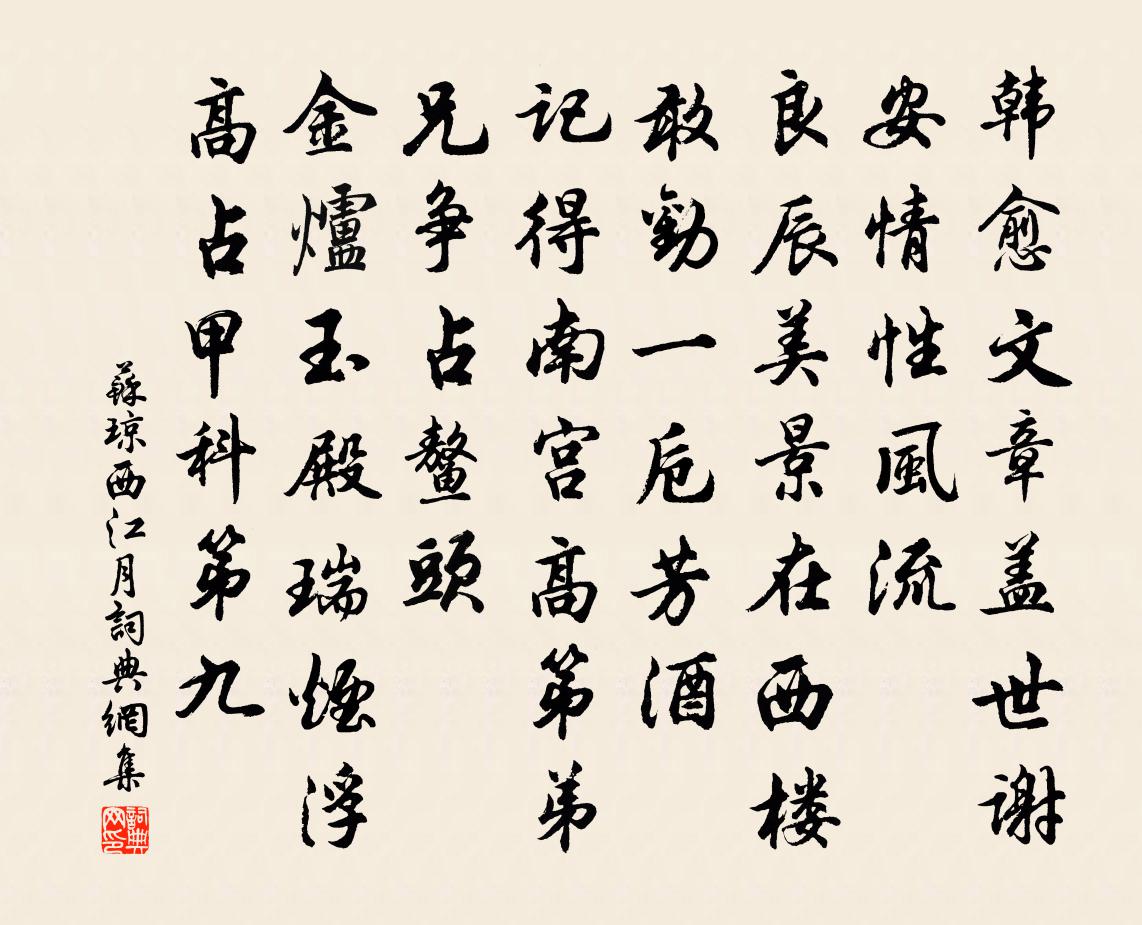 韩愈文章盖世谢
安情性風流
良辰美景在西楼
敢勸一卮芳酒
记得南宫高第弟
兄争占鳌頭
金爐玉殿瑞煙浮
高占甲科第九
蘇琼西江月詞典網集
詞典网印